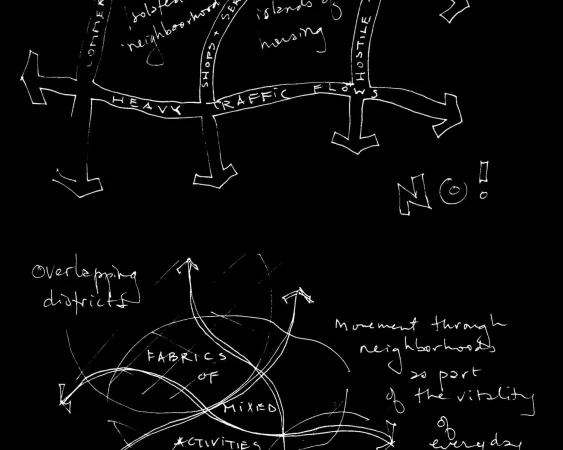 isolated
neighborhoods
islands of
housing
COMMER
SHOPS + SER
HOSTILE
HEAVY TRAFFIC FLOWS
NO!
Overlapping
districts
FABRICS
OF
MIXED
ACTIVITIES
Movement through
neighborhoods
as part
of the vitality
of
everyday